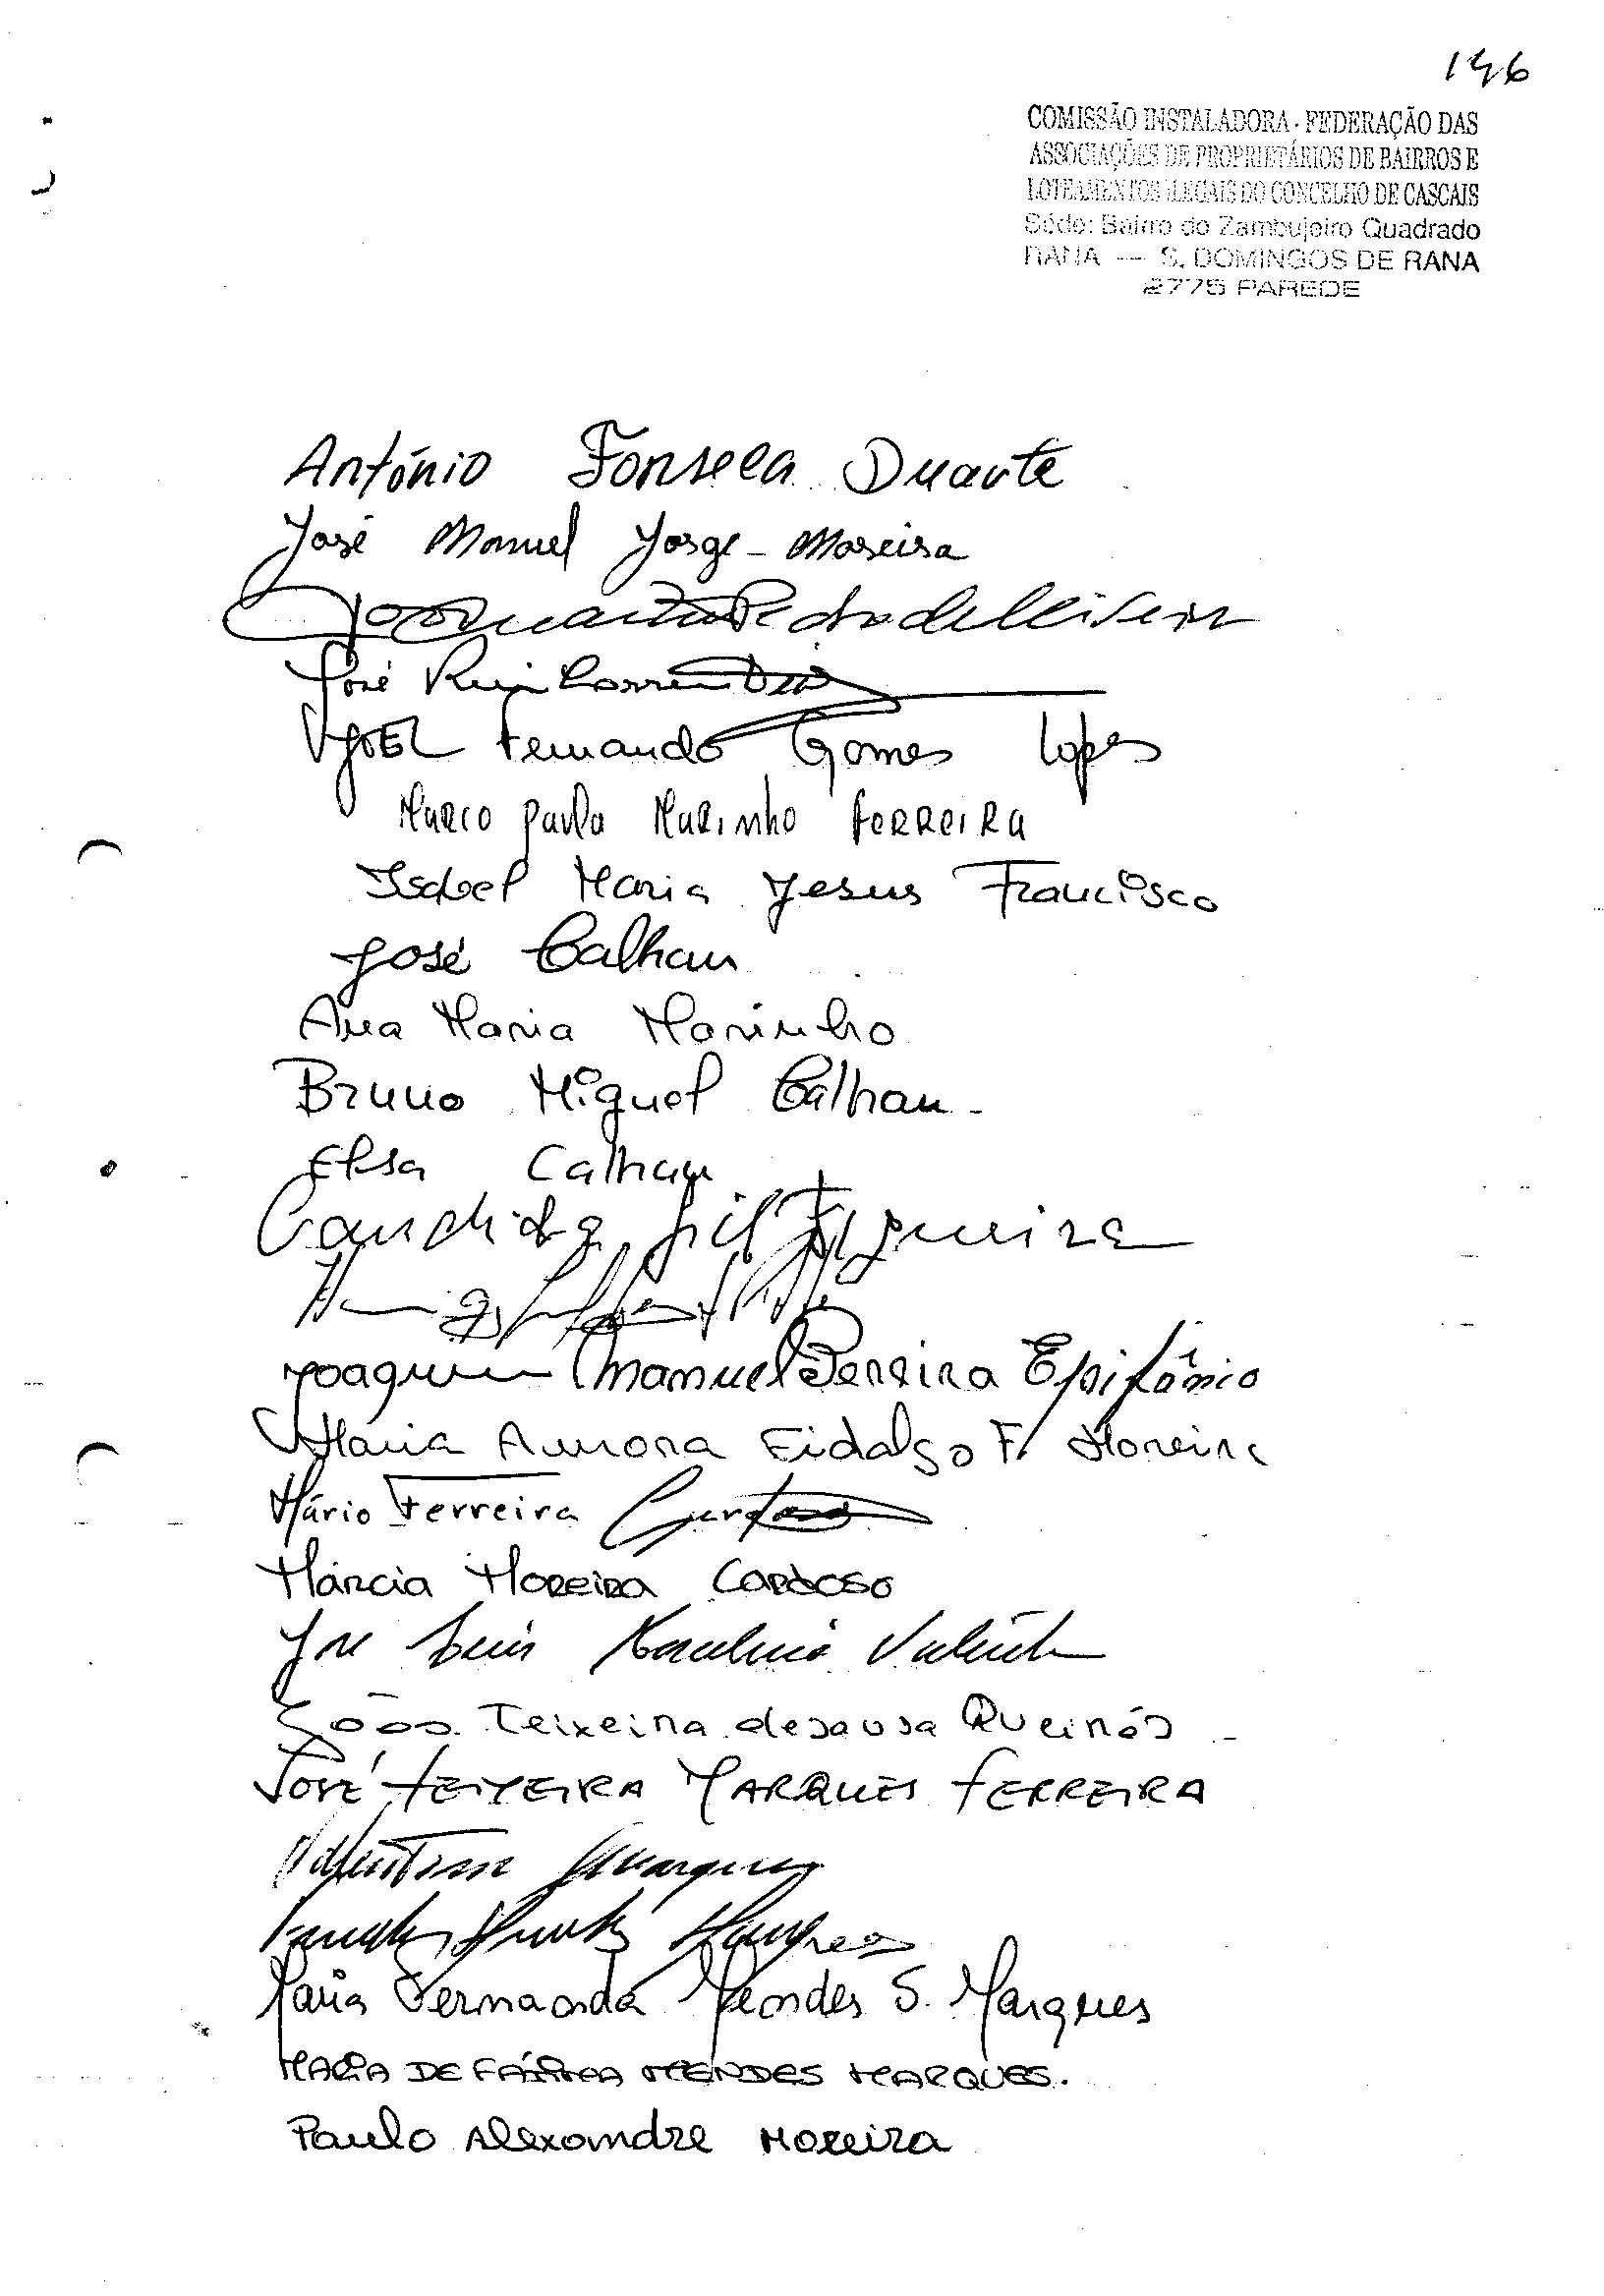 146
COMISSÃO INSTALADORA - FEDERAÇÃO DAS
ASSOCIAÇÕES DE PROPRIETÁRIOS DE BAIRROS E
LOTEAMENTOS ILEGAIS DO CONCELHO DE CASCAIS
Séde: Bairro do Zambujeiro Quadrado
RANA — S. DOMINGOS DE RANA
2775 PAREDE
António Fonseca Duarte
José Manuel Jorge Moreira
José Rui
Joel Fernando Gomes Lopes
Marco Paulo Marinho Ferreira
Isabel Maria Jesus Francisco
José Calhau
Ana Maria Marinho
Bruno Miguel Calhau
Elsa Calhau
Candida Gil Figueira
Joaquim Manuel Pereira Epifânio
Maria Aurora Fidalgo F. Moreira
Mário Ferreira
Márcia Moreira Cardoso
José Luis Valente
João Teixeira de Sousa Queirós
JOSÉ TEIXEIRA MARQUES FERREIRA
Valentim Marques
Marques
Maria Fernanda Mendes S. Marques
MARIA DE FÁTIMA MENDES MARQUES.
Paulo Alexandre Moreira